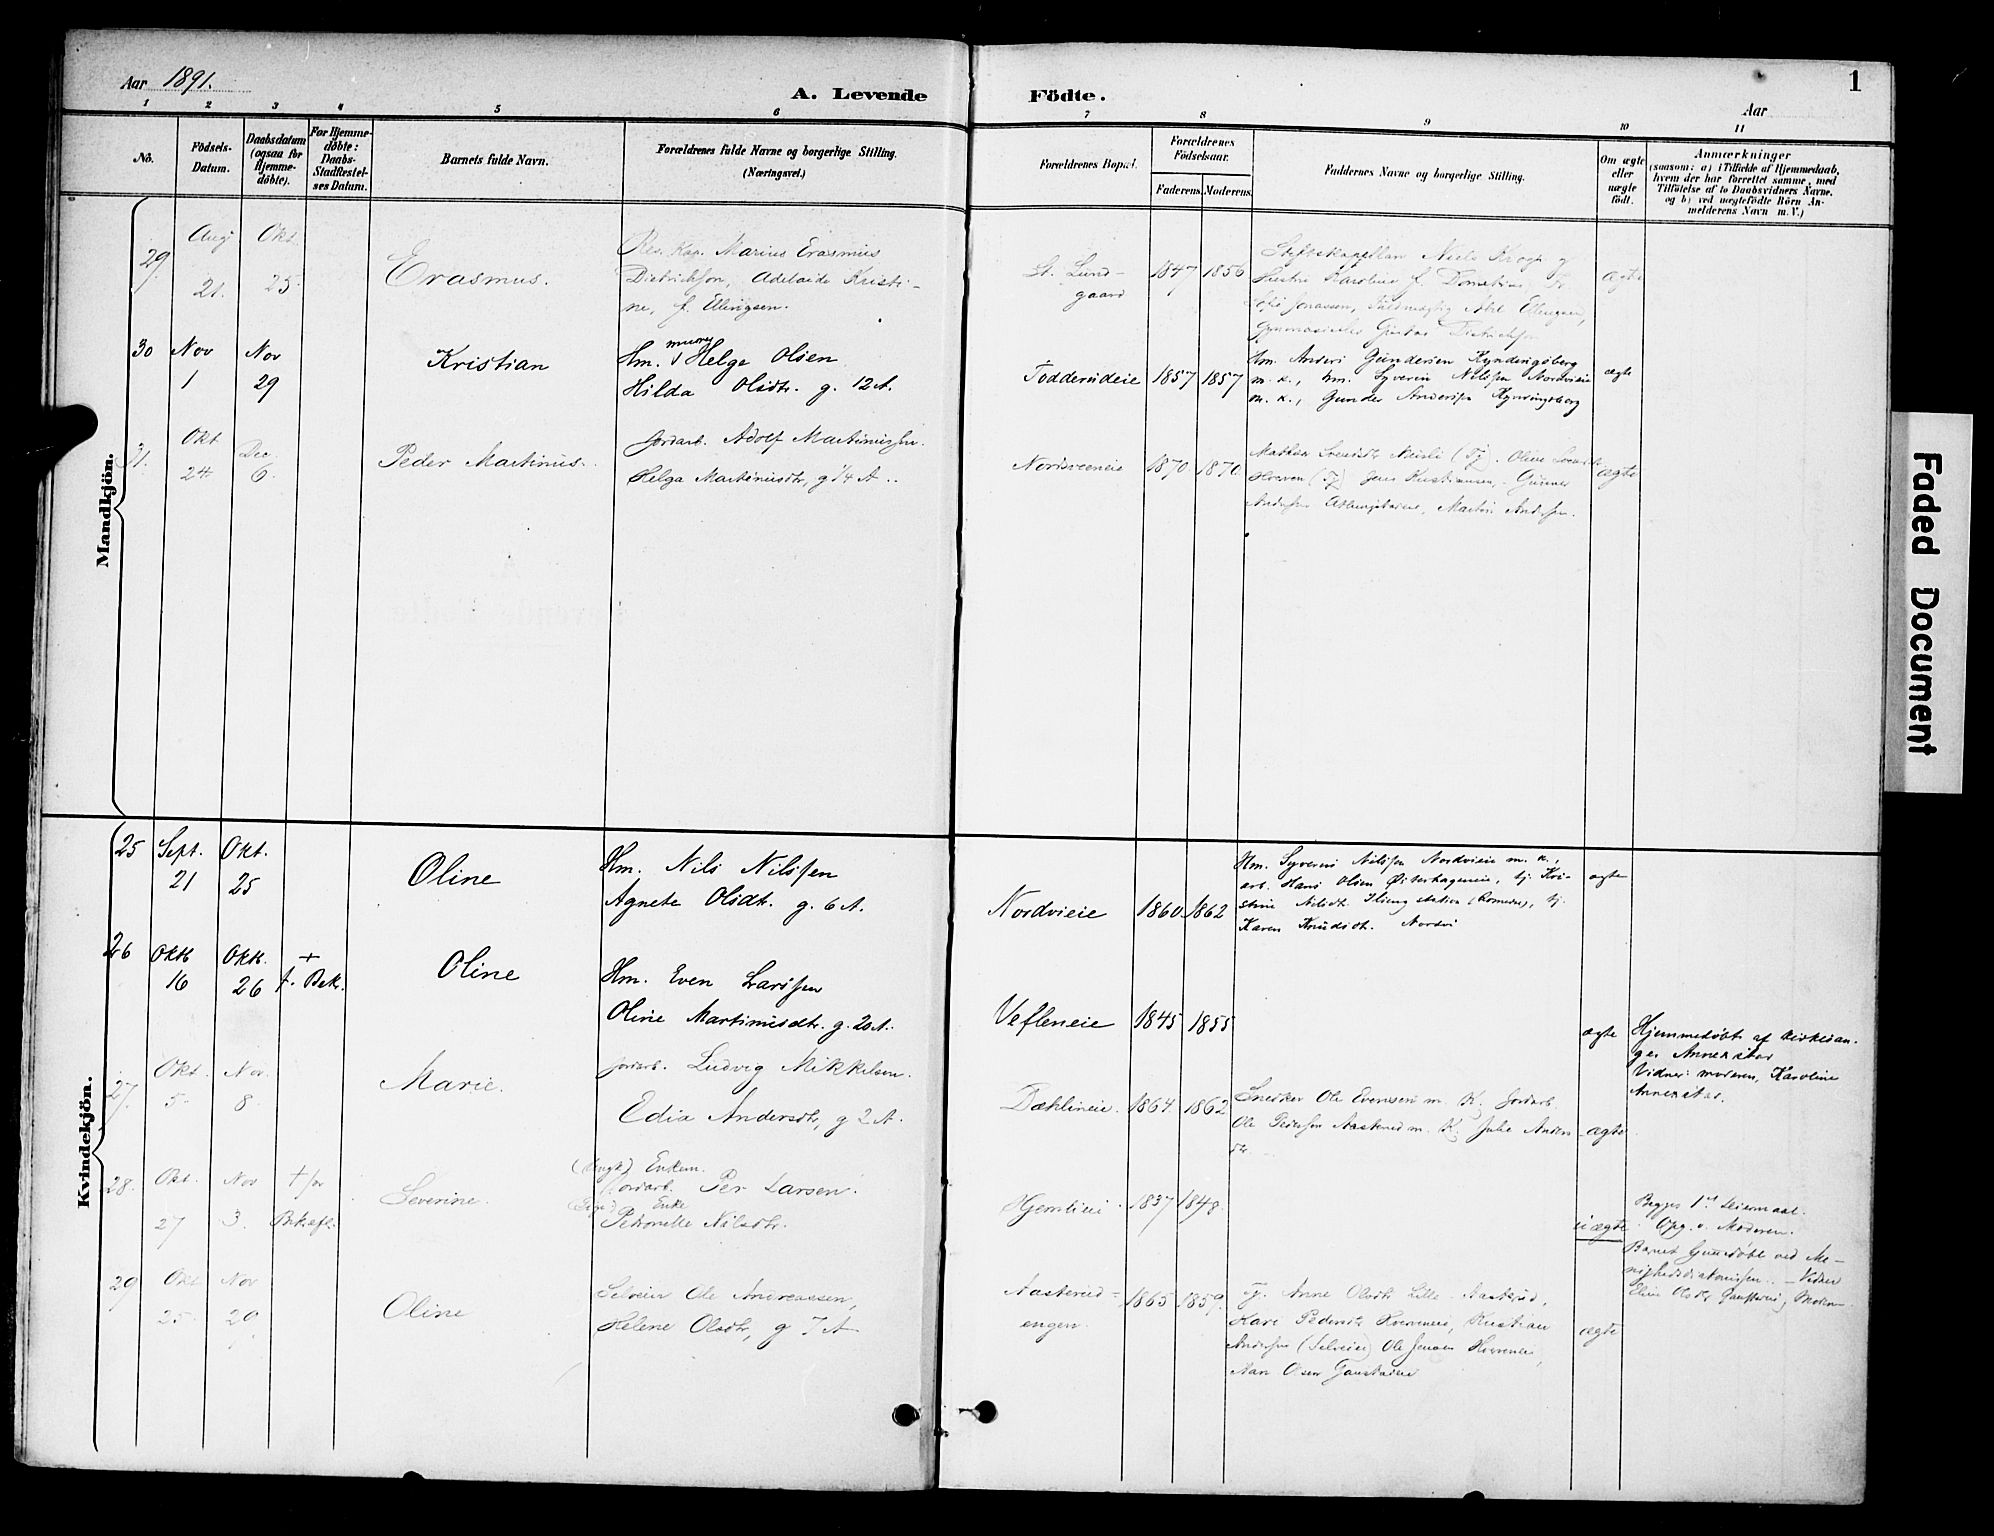 Aar 1891.
A. Levende Födte.
Aar
1
1 2 3 4 5 6 7 8 9 10 11
No.
Födsels-Datum.
Daabsdatum (ogsaa for Hjemme-döbte).
For Hjemme-döbte: Daabs-Stadfæstel-ses Datum.
Barnets fulde Navn.
Forældrenes fulde Navne og borgerlige Stilling.
(Næringsvei.)
Forældrenes Bopæl.
Forældrenes Födselsaar.
Faderens. Moderens.
Faddernes Navne og borgerlige Stilling.
Om ægte eller uægte födt.
Anmærkninger
(saasom: a) i Tilfælde af Hjemmedaab,
hvem der har forrettet samme, med
Tilföielse af to Daabsvidners Navne.
og b) ved uægtefödte Börn An-
melderens Navn m. V.)
Mandkjön.
29 Aug 21. Okt. 25.
Erasmus.
Res. Kap. Marius Erasmus
Dietrichson, Adelaide Kristi-
ne, f. Ellingsen.
St. Lund-
gaard
1847 1856
Stiftskapellan Niels Krogh og
Hustru Karoline f.
Jonassen, Fuldmægtig Ellingsen,
Gustav Dietrichson
ægte
30 Nov 1 Nov 29
Kristian
Hm. murer Helge Olsen
Hilda Olsdtr. g. 12 A.
Fodderudeie 1857 1857
Hm. Anders Gundersen Kyndingsberg
m. k., hm. Syverin Nilssen Nordvieie
m. k., Gunder Anderssen Kyndingsberg
ægte
31. Okt 24 Dec. 6.
Peder Martinus.
Jordarb. Adolf Martinussen.
Helga Martinusdtr, g 1/4 A..
Nordsveeneie 1870 1870.
(Tj). Oline
(Tj) Jens Kristiansen, Gunner
Anderssen Martin Anderssen.
ægte
Kvindekjön.
25 Sept. 21 Okt. 25
Oline
Hm. Nils Nilssen
Agnete Olsdt. g. 6 A.
Nordvieie 1860 1862
Hm. Syverin Nilssen Nordvieie m. k.,
arb. Hans Olsen Østerhageneie, tj. Kri-
stine Nilsdt. Ilseng station (Romedal), tj.
Karen Knudsdt. Nordvi
ægte
26 Oktb 16 Oktb. 26 + f. Bekr.
Oline
Hm. Even Larssen
Oline Martinusdtr. g. 20 A.
Vefleneie 1845 1855
ægte
Hjemmedøbt af kirkesan-
ger Annexstad
Vidner: moderen, Karoline
Annexstad.
27. Okt. 5. Nov. 8.
Marie.
Jordarb. Ludvig Mikkelsen.
Edia Andersdtr, g 2 A.
Dæhlineie. 1864. 1862
Snedker Ole Evensen m. K. Jordarb.
Ole Pederssen Aasterud m. K. Julie Anders-
dtr.
ægte
28. Okt. 27 Nov 3. + før Bekræft.
Severine.
(Ungk) Enkem.
Jordarb. Per Larsen.
(Pige) Enke
Petronelle Nilsdtr.
Hjemlieie 1837 1848.
uægte
Begges 1ste Leiermaal.
Opg. v. Moderen.
Barnet hjemdøbt ved Me-
nighedsdiakonissen. – Vidner
Eline Olsdtr Gaustadeie, Moderen
29 Okt 25. Nov 29.
Oline
Selveier Ole Andreassen,
Helene Olsdtr, g 7 A
Aasterud-
engen. 1865 1859.
Tj. Anne Olsdtr Lille-Aasterud,
Kari Pedersdtr Kristian
Anderssen (Selveier) Ole Jensen
Olsen Gaustadeie
ægte
Faded Document